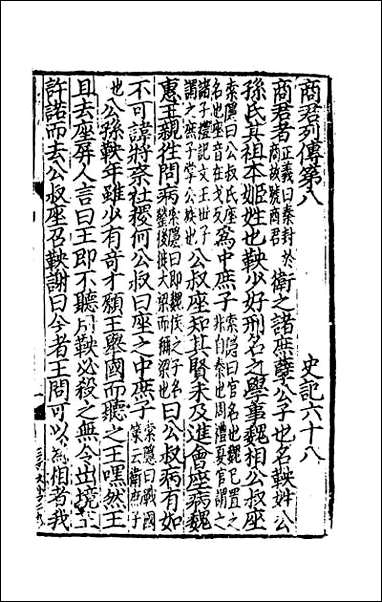 商君列傳第八 史記六十八
商君者正義曰秦封於商故號商君衛之諸庶孽公子也名鞅姓公
孫氏其祖本姬姓也鞅少好刑名之學事魏相公叔座
索隱曰公叔氏座名也座音在戈反為中庶子索隱曰官名也魏已置之非自秦也周禮夏官謂之
諸子禮記文王世子謂之庶子掌公族也公叔座知其賢未及進會座病魏
惠王親往問病索隱曰即魏侯之子名罃後徙大梁而稱梁也曰公叔病有如
不可諱將柰社稷何公叔曰座之中庶子索隱曰戰國策云衛庶子
也公孫鞅年雖少有奇才願王舉國而聽之王嘿然王
且去座屏人言曰王即不聽用鞅必殺之無令出境王
許諾而去公叔座召鞅謝曰今者王問可以為相者我